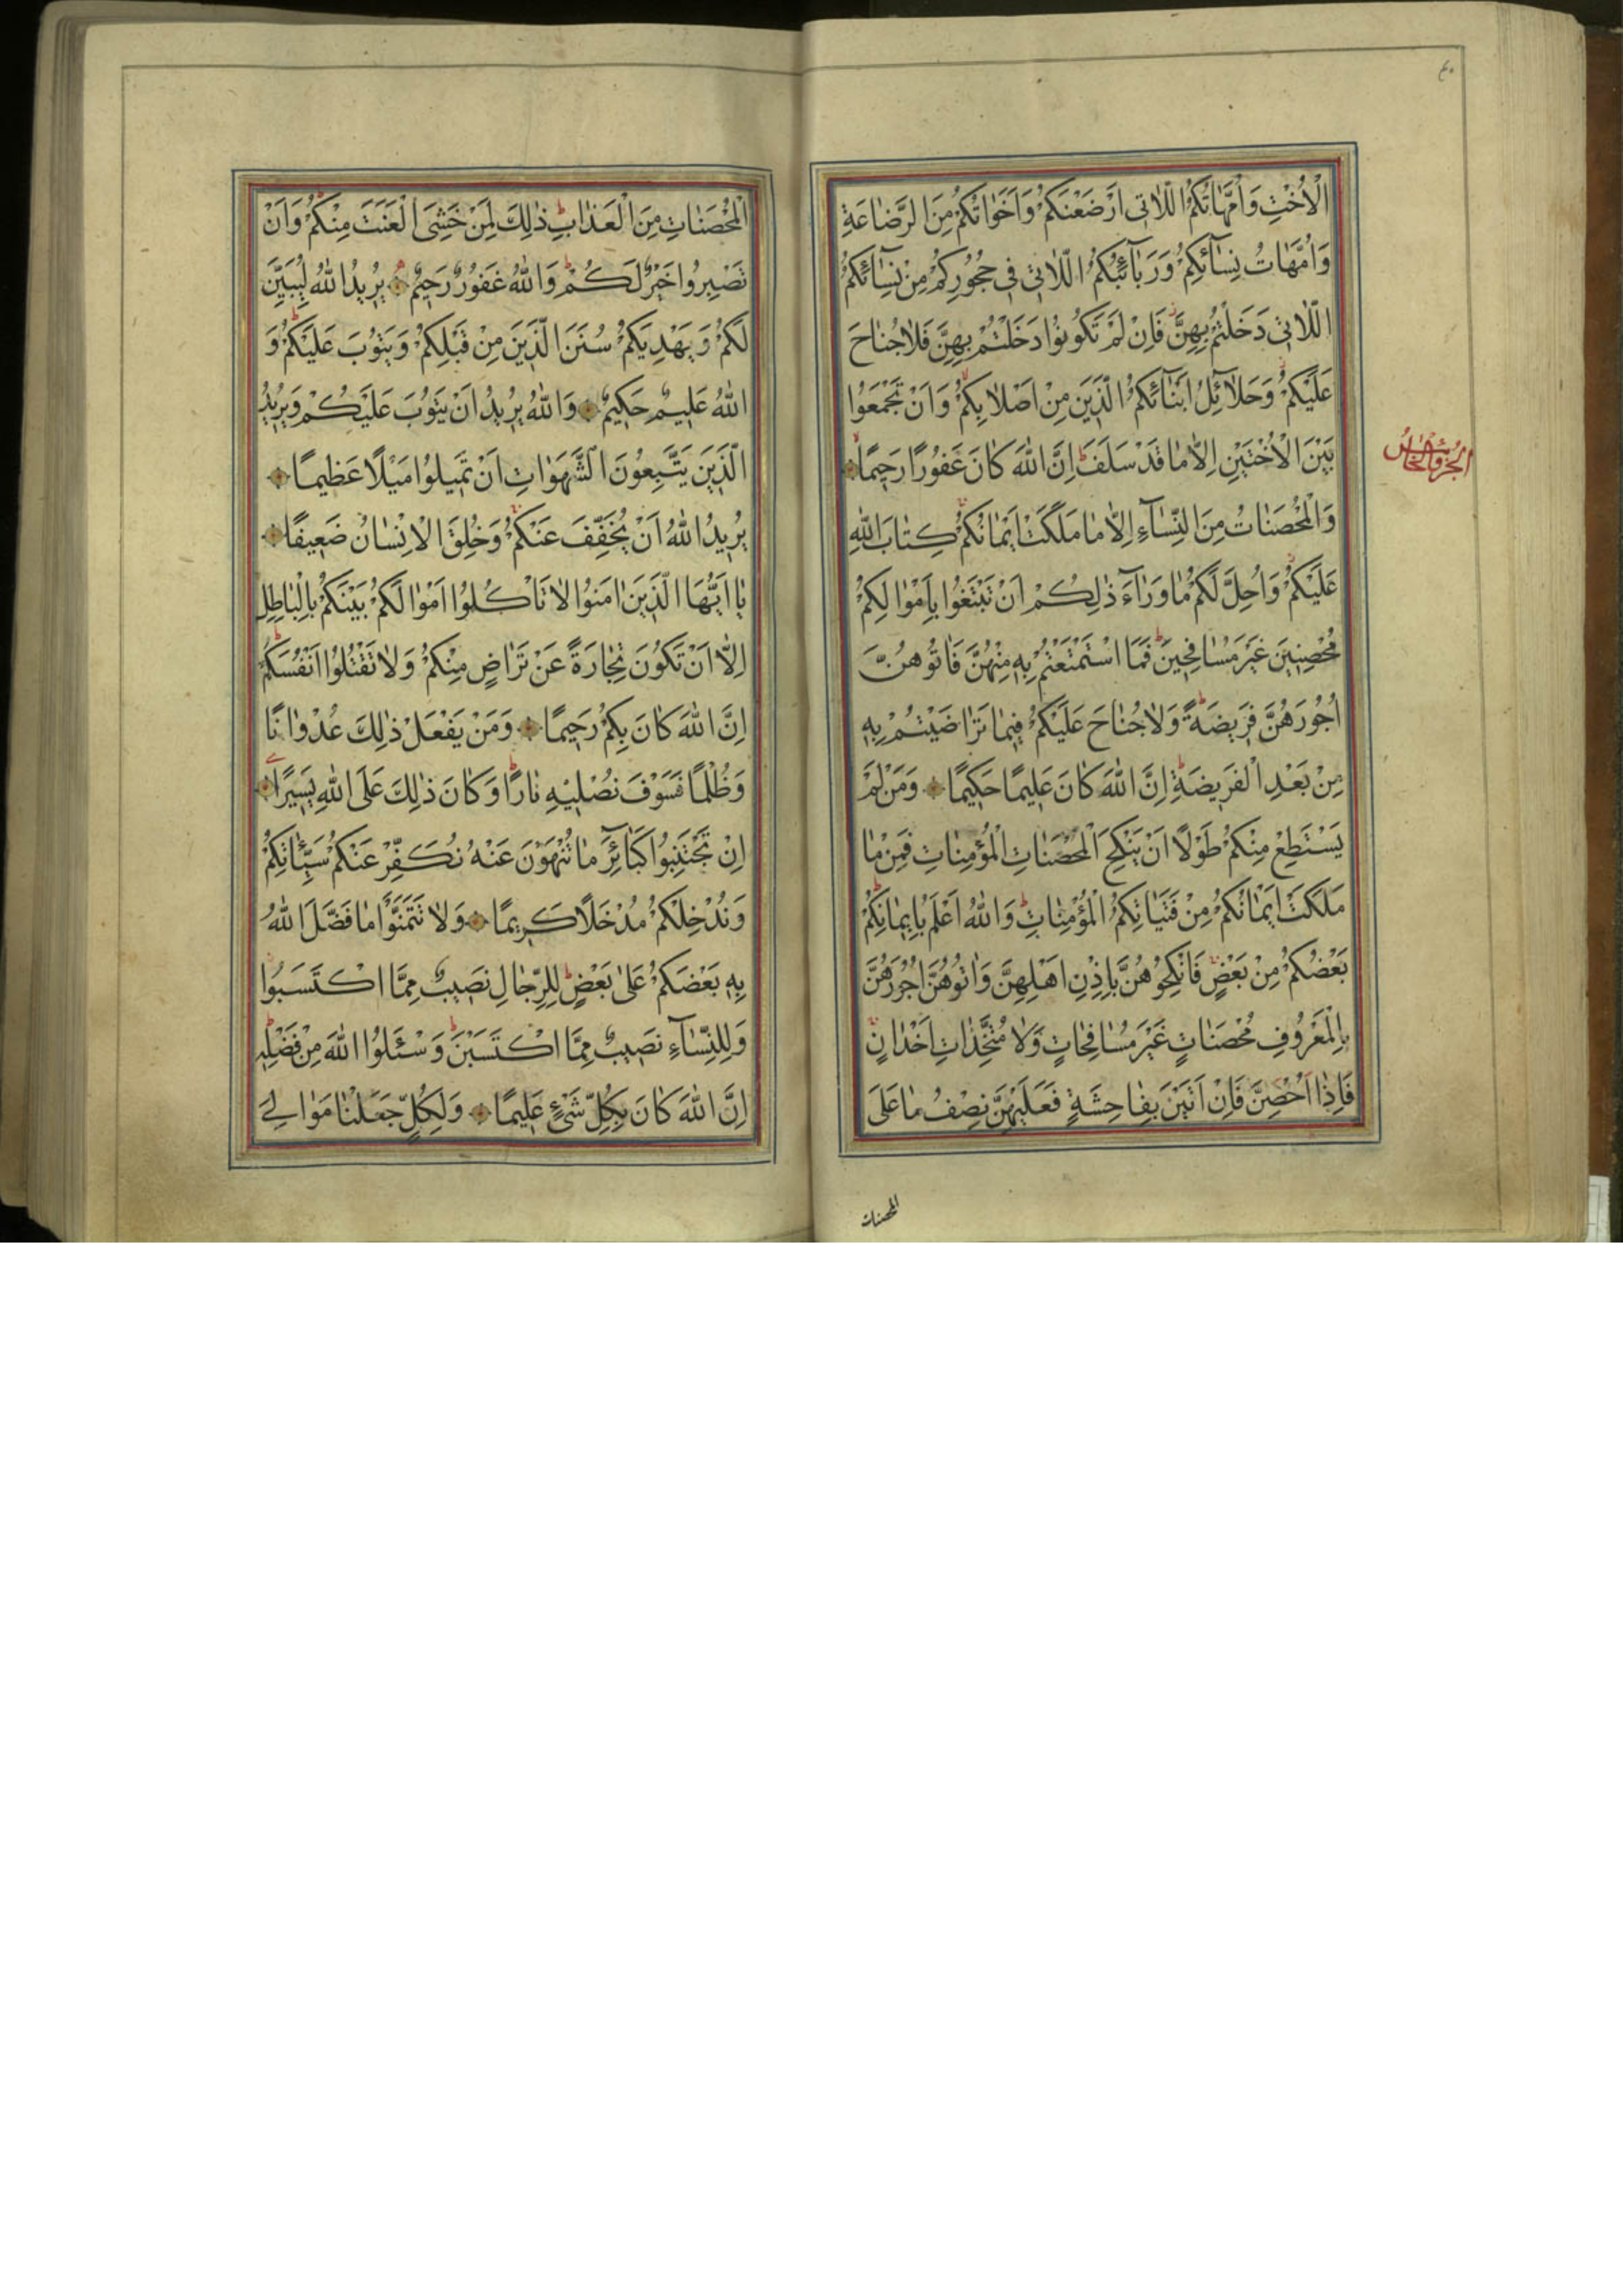 ٤٠
الْاُخْتِ وَاُمَّهَاتُكُمُ اللّٰاتٖى اَرْضَعْنَكُمْ وَاَخَوَاتُكُمْ مِنَ الرَّضَاعَةِ
وَاُمَّهَاتُ نِسَآئِكُمْ وَرَبَآئِبُكُمُ اللّٰاتٖى فٖى حُجُورِكُمْ مِنْ نِسَآئِكُمُ
اللّٰاتٖى دَخَلْتُمْ بِهِنَّ فَاِنْ لَمْ تَكُونُوا دَخَلْتُمْ بِهِنَّ فَلَا جُنَاحَ
عَلَيْكُمْ وَحَلَآئِلُ اَبْنَآئِكُمُ الَّذٖينَ مِنْ اَصْلَابِكُمْ وَاَنْ تَجْمَعُوا
بَيْنَ الْاُخْتَيْنِ اِلَّا مَا قَدْ سَلَفَ اِنَّ اللّٰهَ كَانَ غَفُورًا رَحٖيمًا
الجزؤ الخامس
وَالْمُحْصَنَاتُ مِنَ النِّسَآءِ اِلَّا مَا مَلَكَتْ اَيْمَانُكُمْ كِتَابَ اللّٰهِ
عَلَيْكُمْ وَاُحِلَّ لَكُمْ مَا وَرَآءَ ذٰلِكُمْ اَنْ تَبْتَغُوا بِاَمْوَالِكُمْ
مُحْصِنٖينَ غَيْرَ مُسَافِحٖينَ فَمَا اسْتَمْتَعْتُمْ بِهٖ مِنْهُنَّ فَاٰتُوهُنَّ
اُجُورَهُنَّ فَرٖيضَةً وَلَا جُنَاحَ عَلَيْكُمْ فٖيمَا تَرَاضَيْتُمْ بِهٖ
مِنْ بَعْدِ الْفَرٖيضَةِ اِنَّ اللّٰهَ كَانَ عَلٖيمًا حَكٖيمًا وَمَنْ لَمْ
يَسْتَطِعْ مِنْكُمْ طَوْلًا اَنْ يَنْكِحَ الْمُحْصَنَاتِ الْمُؤْمِنَاتِ فَمِنْ مَا
مَلَكَتْ اَيْمَانُكُمْ مِنْ فَتَيَاتِكُمُ الْمُؤْمِنَاتِ وَاللّٰهُ اَعْلَمُ بِاٖيمَانِكُمْ
بَعْضُكُمْ مِنْ بَعْضٍ فَانْكِحُوهُنَّ بِاِذْنِ اَهْلِهِنَّ وَاٰتُوهُنَّ اُجُورَهُنَّ
بِالْمَعْرُوفِ مُحْصَنَاتٍ غَيْرَ مُسَافِحَاتٍ وَلَا مُتَّخِذَاتِ اَخْدَانٍ
فَاِذَا اُحْصِنَّ فَاِنْ اَتَيْنَ بِفَاحِشَةٍ فَعَلَيْهِنَّ نِصْفُ مَا عَلَى
المحصنات
الْمُحْصَنَاتِ مِنَ الْعَذَابِ ذٰلِكَ لِمَنْ خَشِىَ الْعَنَتَ مِنْكُمْ وَاَنْ
تَصْبِرُوا خَيْرٌ لَكُمْ وَاللّٰهُ غَفُورٌ رَحٖيمٌ يُرٖيدُ اللّٰهُ لِيُبَيِّنَ
لَكُمْ وَيَهْدِيَكُمْ سُنَنَ الَّذٖينَ مِنْ قَبْلِكُمْ وَيَتُوبَ عَلَيْكُمْ وَ
اللّٰهُ عَلٖيمٌ حَكٖيمٌ وَاللّٰهُ يُرٖيدُ اَنْ يَتُوبَ عَلَيْكُمْ وَيُرٖيدُ
الَّذٖينَ يَتَّبِعُونَ الشَّهَوَاتِ اَنْ تَمٖيلُوا مَيْلًا عَظٖيمًا
يُرٖيدُ اللّٰهُ اَنْ يُخَفِّفَ عَنْكُمْ وَخُلِقَ الْاِنْسَانُ ضَعٖيفًا
يَا اَيُّهَا الَّذٖينَ اٰمَنُوا لَا تَاْكُلُوا اَمْوَالَكُمْ بَيْنَكُمْ بِالْبَاطِلِ
اِلَّا اَنْ تَكُونَ تِجَارَةً عَنْ تَرَاضٍ مِنْكُمْ وَلَا تَقْتُلُوا اَنْفُسَكُمْ
اِنَّ اللّٰهَ كَانَ بِكُمْ رَحٖيمًا وَمَنْ يَفْعَلْ ذٰلِكَ عُدْوَانًا
وَظُلْمًا فَسَوْفَ نُصْلٖيهِ نَارًا وَكَانَ ذٰلِكَ عَلَى اللّٰهِ يَسٖيرًا
اِنْ تَجْتَنِبُوا كَبَآئِرَ مَا تُنْهَوْنَ عَنْهُ نُكَفِّرْ عَنْكُمْ سَيِّئَاتِكُمْ
وَنُدْخِلْكُمْ مُدْخَلًا كَرٖيمًا وَلَا تَتَمَنَّوْا مَا فَضَّلَ اللّٰهُ
بِهٖ بَعْضَكُمْ عَلٰى بَعْضٍ لِلرِّجَالِ نَصٖيبٌ مِمَّا اكْتَسَبُوا
وَلِلنِّسَآءِ نَصٖيبٌ مِمَّا اكْتَسَبْنَ وَسْئَلُوا اللّٰهَ مِنْ فَضْلِهٖ
اِنَّ اللّٰهَ كَانَ بِكُلِّ شَىْءٍ عَلٖيمًا وَلِكُلٍّ جَعَلْنَا مَوَالِىَ